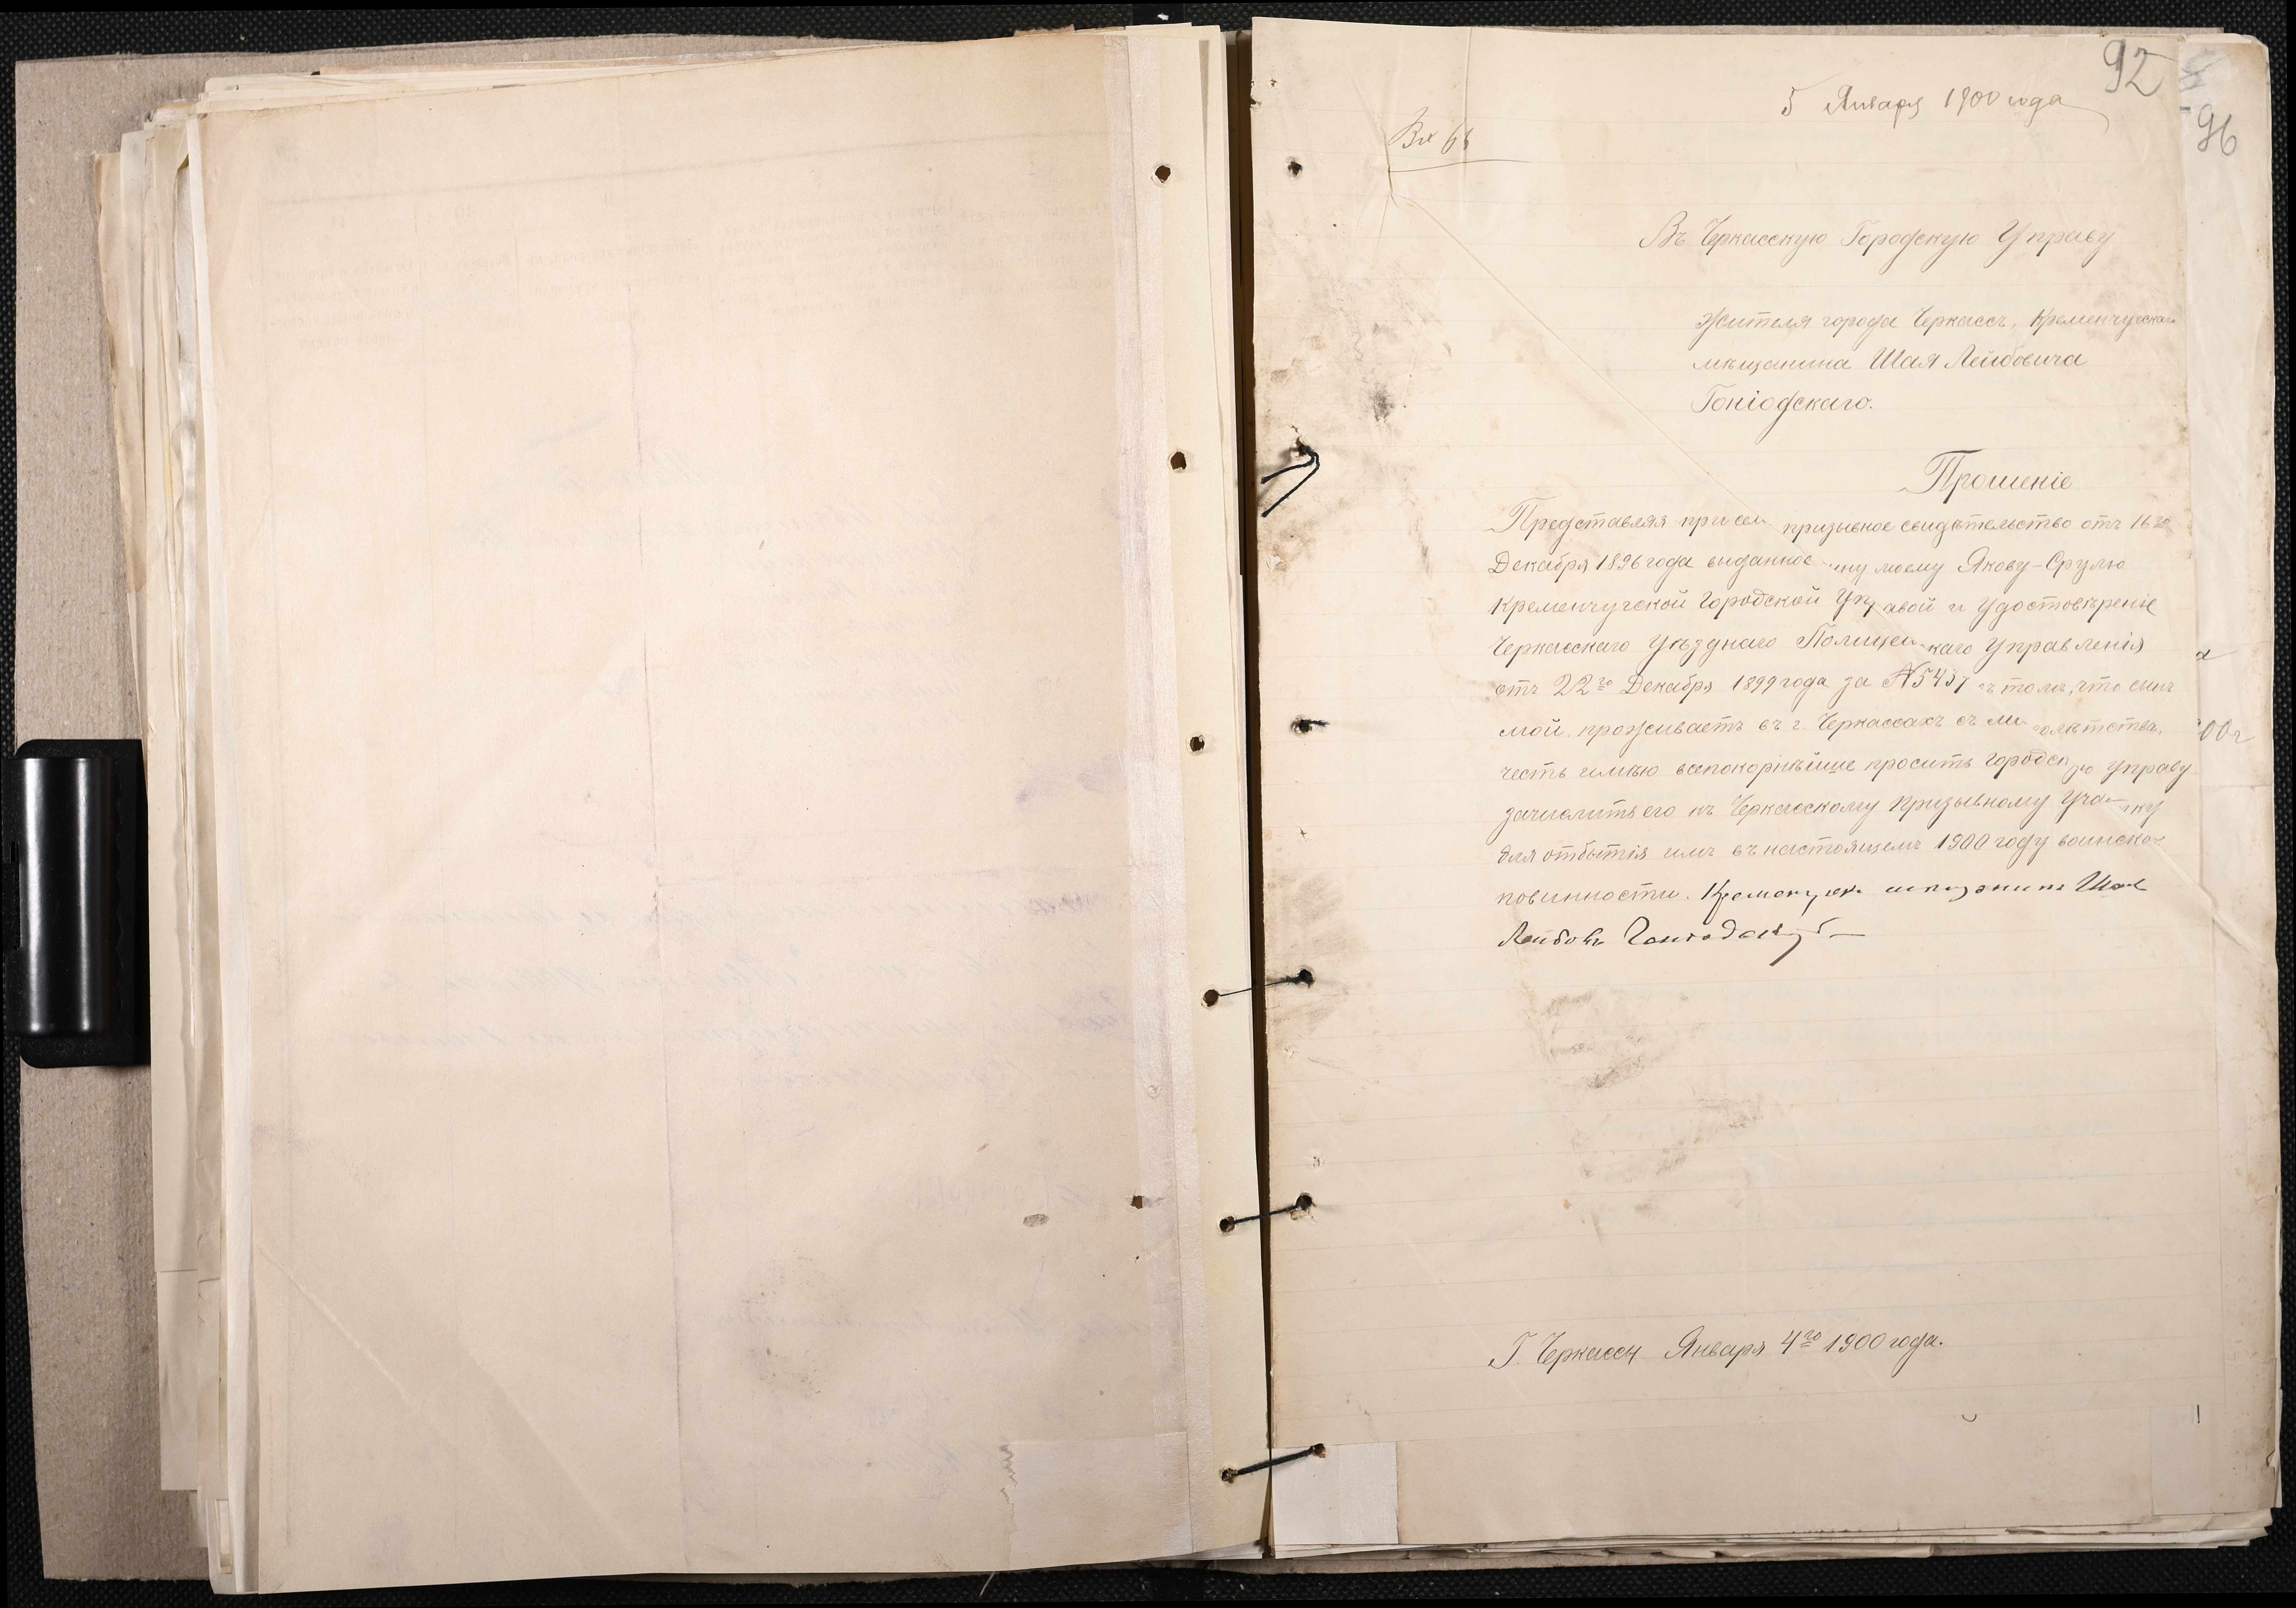 92
96
5 Января 1900 года
Вх 66
Въ Черкасскую Городскую Управу
Жителя города Черкассъ, Кременчугскаго
мѣщанина Шая Лейбовича
Гоніодскаго.
Прошеніе
Представляя при сем призывное свидѣтельство отъ 16го
Декабря 1896 года выданное ыну моему Якову-Срулю
Кременчугской Городской Управой и Удостовѣреніе
Черкасскаго Уѣзднаго Полицей каго Управленія
отъ 22го Декабря 1899 года за №5457 въ томъ, что сынъ
мой, проживаетъ въ г. Черкассахъ съ ма олѣтства,
честь имѣю всепокорнѣйше просить Городск ю Управу
зачислить его къ Черкасскому Призывному Уча тку
для отбытія имъ въ настоящемъ 1900 году воинской
повинности. Кременчугск. мѣщанинъ Шая
Лейбовъ Гоніодскій
Г. Черкассы Января 4го 1900 года.